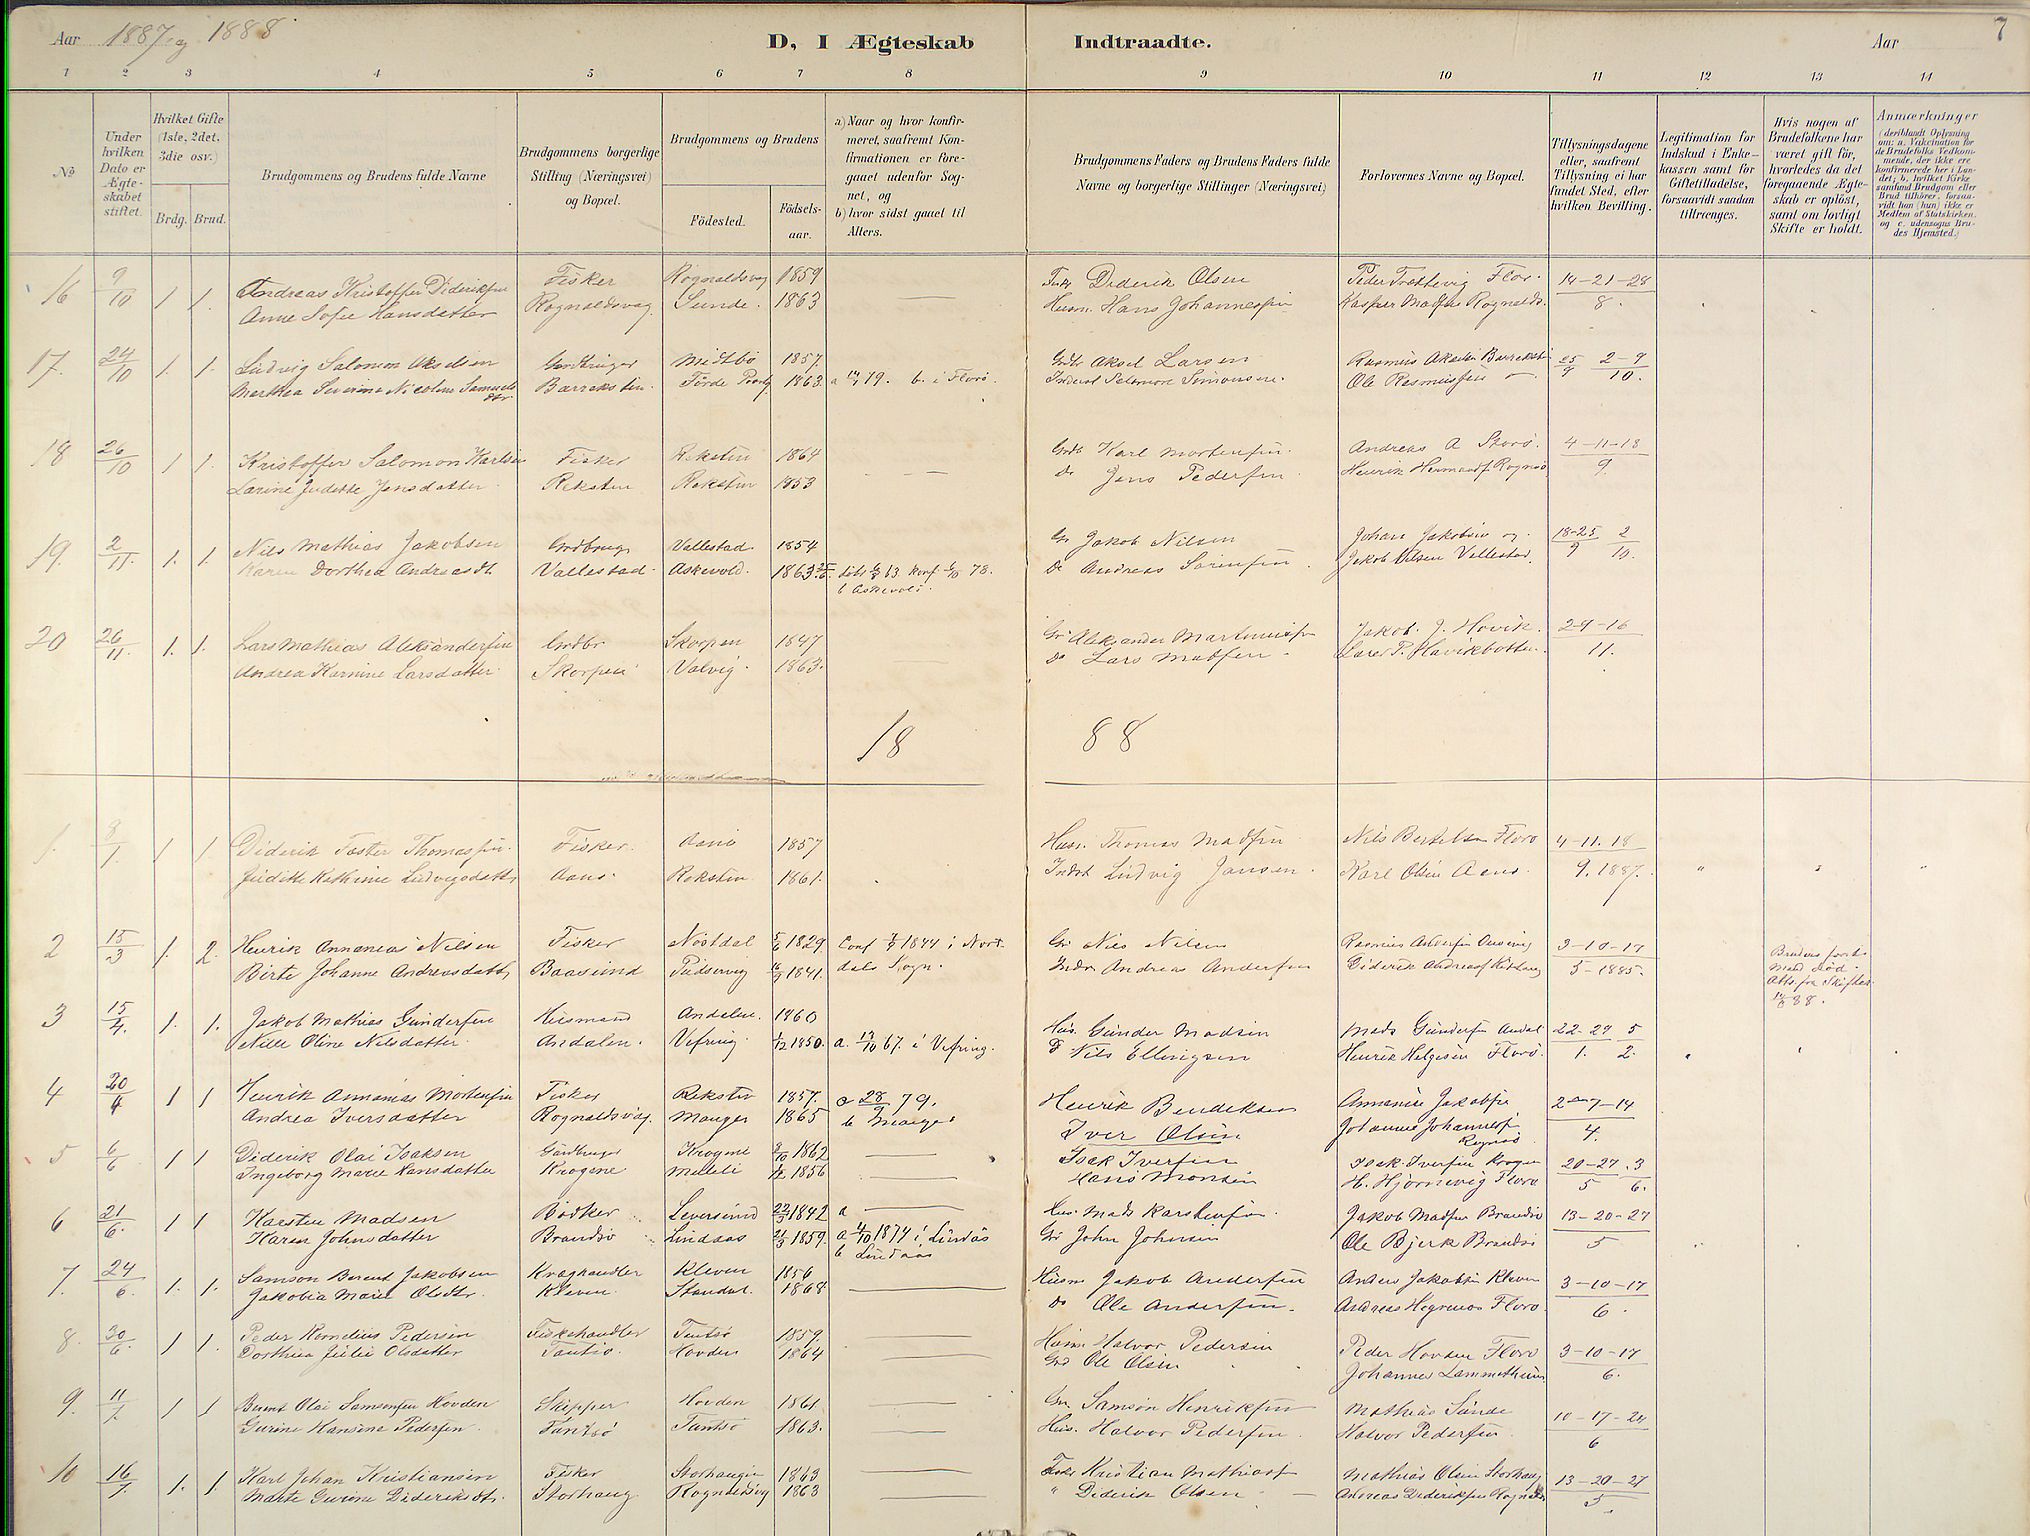 Aar 1887 og 1888
D, I Ægteskab Indtraadte.
Aar
7
1 2 3 4 5 6 7 8 9 10 11 12 13 14
No
Under hvilken Dato er Ægteskabet stiftet.
Hvilket Gifte (1ste, 2det, 3die osv.)
Brdg. Brud.
Brudgommens og Brudens fulde Navne
Brudgommens borgerlige Stilling (Næringsvei) og Bopæl.
Brudgommens og Brudens
Fødested.
Fødselsaar.
a) Naar og hvor konfirmeret, saafremt Konfirmationen er foregaaet udenfor Sognet, og
b) hvor sidst gaaet til Alters.
Brudgommens Faders og Brudens Faders fulde Navne og borgerlige Stillinger (Næringsvei)
Forlovernes Navne og Bopæl.
Tillysningsdagene eller, saafremt Tillysning ei har fundet Sted, efter hvilken Bevilling.
Legitimation for Indskud i Enkekassen samt for Giftetilladelse, forsaavidt saadan tiltrænges.
Hvis nogen af Brudefolkene har været gift før, hvorledes da det foregaaende Ægteskab er opløst, samt om lovligt Skifte er holdt.
Anmærkninger
16 9/10 1 1. Andreas Kristoffer Dideriksen Fisker Rognaldsvag 1859 Fisk Diderik Olsen Peder Trættevig Flor. 14-21-28
Anne Sofie Hansdatter Rognaldsvag. Sunde. 1863 Husm. Hans Johannessen Kasper Madsen Rognalds. 8.
17. 24/10 1. 1. Ludvig Salomon Akselsen Gardbruger Midtbø 1857. Gdbr Aksel Larsen Rasmus Akselsen Barrekst. 25/9 2-9
Marthea Severine Nicoline Samuelsdtr Barreksten. Førde 1863. a 79. b. i Florø. Inderst Salomon Simonsen. Ole Rasmussen 10.
18 26/10 1 1. Kristoffer Salomon Karlsen Fisker Reksten 1864 Grdb Karl Mortensen. Andreas A Storø. 4-11-18
Larine Judette Jensdatter Reksten Reksten 1853 Do Jens Pedersen Henrik Hermans. Rognø 9.
19. 2/11. 1. 1. Nils Mathias Jakobsen Grdbrug Vallestad. 1854 Gr Jakob Nilsen Johan Jakobsen og 18-25 2
Karen Dorthea Andreasdt. Vallestad. Askevold. 1863 født 63. konf 78. Do Andreas Sørensen Jakob Nilsen Vallestad. 9 10.
b Askevold.
20 26/11. 1. 1. Lars Mathias Aleksandersen Grdbr Skorpen 1847 Gr Aleksander Martinussen Jakob. J. Hovik. 2-9-16
Andrea Karnine Larsdatter Skorpen Valvig. 1863. Do Lars Madsen Lars P. Havikbotten. 11.
18 88
1. 8/1. 1 1 Diderik Taster Thomassen. Fisker. Aano 1857 Husm. Thomas Madsen Nils Bertelsen Florø 4-11.18
Judithe Kathrine Ludvigsdatt. Aanø. Reksten 1861. Indst Ludvig Jansen. Karl Olsen Aanø. 9. 1887.
2 15/3 1. 2. Henrik Annanias Nilsen Fisker Nøstdal 1829. Conf 1844 i Nort. Gr Nils Nilsen Rasmus Andersen 3-10-17
Birte Johanne Andreasdatt. Baasund 1841. dals Sogn. Inder Andreas Andersen Diderik Andreass. 5-1885. Brudens første Mand død. Att. fra Skiften. 88.
3 15/4. 1. 1. Jakob Mathias Gundersen Husmand Andalen. 1860 Hus. Gunder Madsen Mads Gundersen Andal 22-29 5
Nille Oline Nilsdatter. Andalen. Vefring. 1/12 1850. a. 13/10 67. i Vefring. D Nils Ellingsen Henrik Helgesen Florø. 1. 2.
4 20/4 1 1 Henrik Annanias Mortensen Fisker Reksten 1857. a 28/9 79. Henrik Bendiksen Annanias Jakobsen 2-7-14
Andrea Iversdatter Rognaldsvag. Mauger 1865 b Mauger Iver Olsen Johannes Johannessen Rognø 4.
5 6/6 1 1 Diderik Olai Isaksen Gardbruger Krogene 1862 Isak Iversen Isak Iversen Krogen 20-27. 3
Ingeborg Marie Hansdatter Krogene Melleli 1856 Hans Monsen H. Hjørnevig Florø 5 6.
6 21/6. 1 1 Karsten Madsen Bødker Leversund 22/3 1842 a Hus. Mads Karstensen. Jakob Madsen Brandsø 13-20-27
Karen Johnsdatter Brandsø Lindaas 1859. a 4/10 1874 i Lindås Gr John Johnsen Ole Bjerk Brandsø 5
b Lindaas
7. 24/6. 1. 1. Samson Berent Jakobsen Kræghandler Kleven 1856 Husm Jakob Andersen Anders Jakobsen Kleven 3-10-17
Jakobia Marie Olsdtr. Kleven. Standal. 1868 Do Ole Andersen. Andreas Hegrenes Florø. 6.
8. 30/6. 1 1 Peder Kornelius Pedersen Fiskehandler Tantsø 1859. Husm Halvor Pedersen Peder Hovden Florø 3-10-17
Dorthea Julie Olsdatter Tantsø. Hovden 1864 Grd Ole Olsen Johannes Lammetun 6.
9. 11/7. 1 1 Berent Olai Samsonsen Hovden Skipper Hovden 1861 Gr Samson Henriksen Mathias Sunde 10-17-24
Gurine Hansine Pedersen. Tantsø Tantsø 1863. Hus. Halvor Pedersen. Halvor Pedersen 6
10 16/7 1. 1. Karl Johan Kristiansen Fisker Storhaugen 1863 Fisk Kristian Mathiass. Mathias Olsen Storhaug 13-20-27
Marte Gurine Dideriksdt. Storhaug. Rognaldsvg 1863 " Diderik Olsen Andreas Dideriksen Rognalds 5